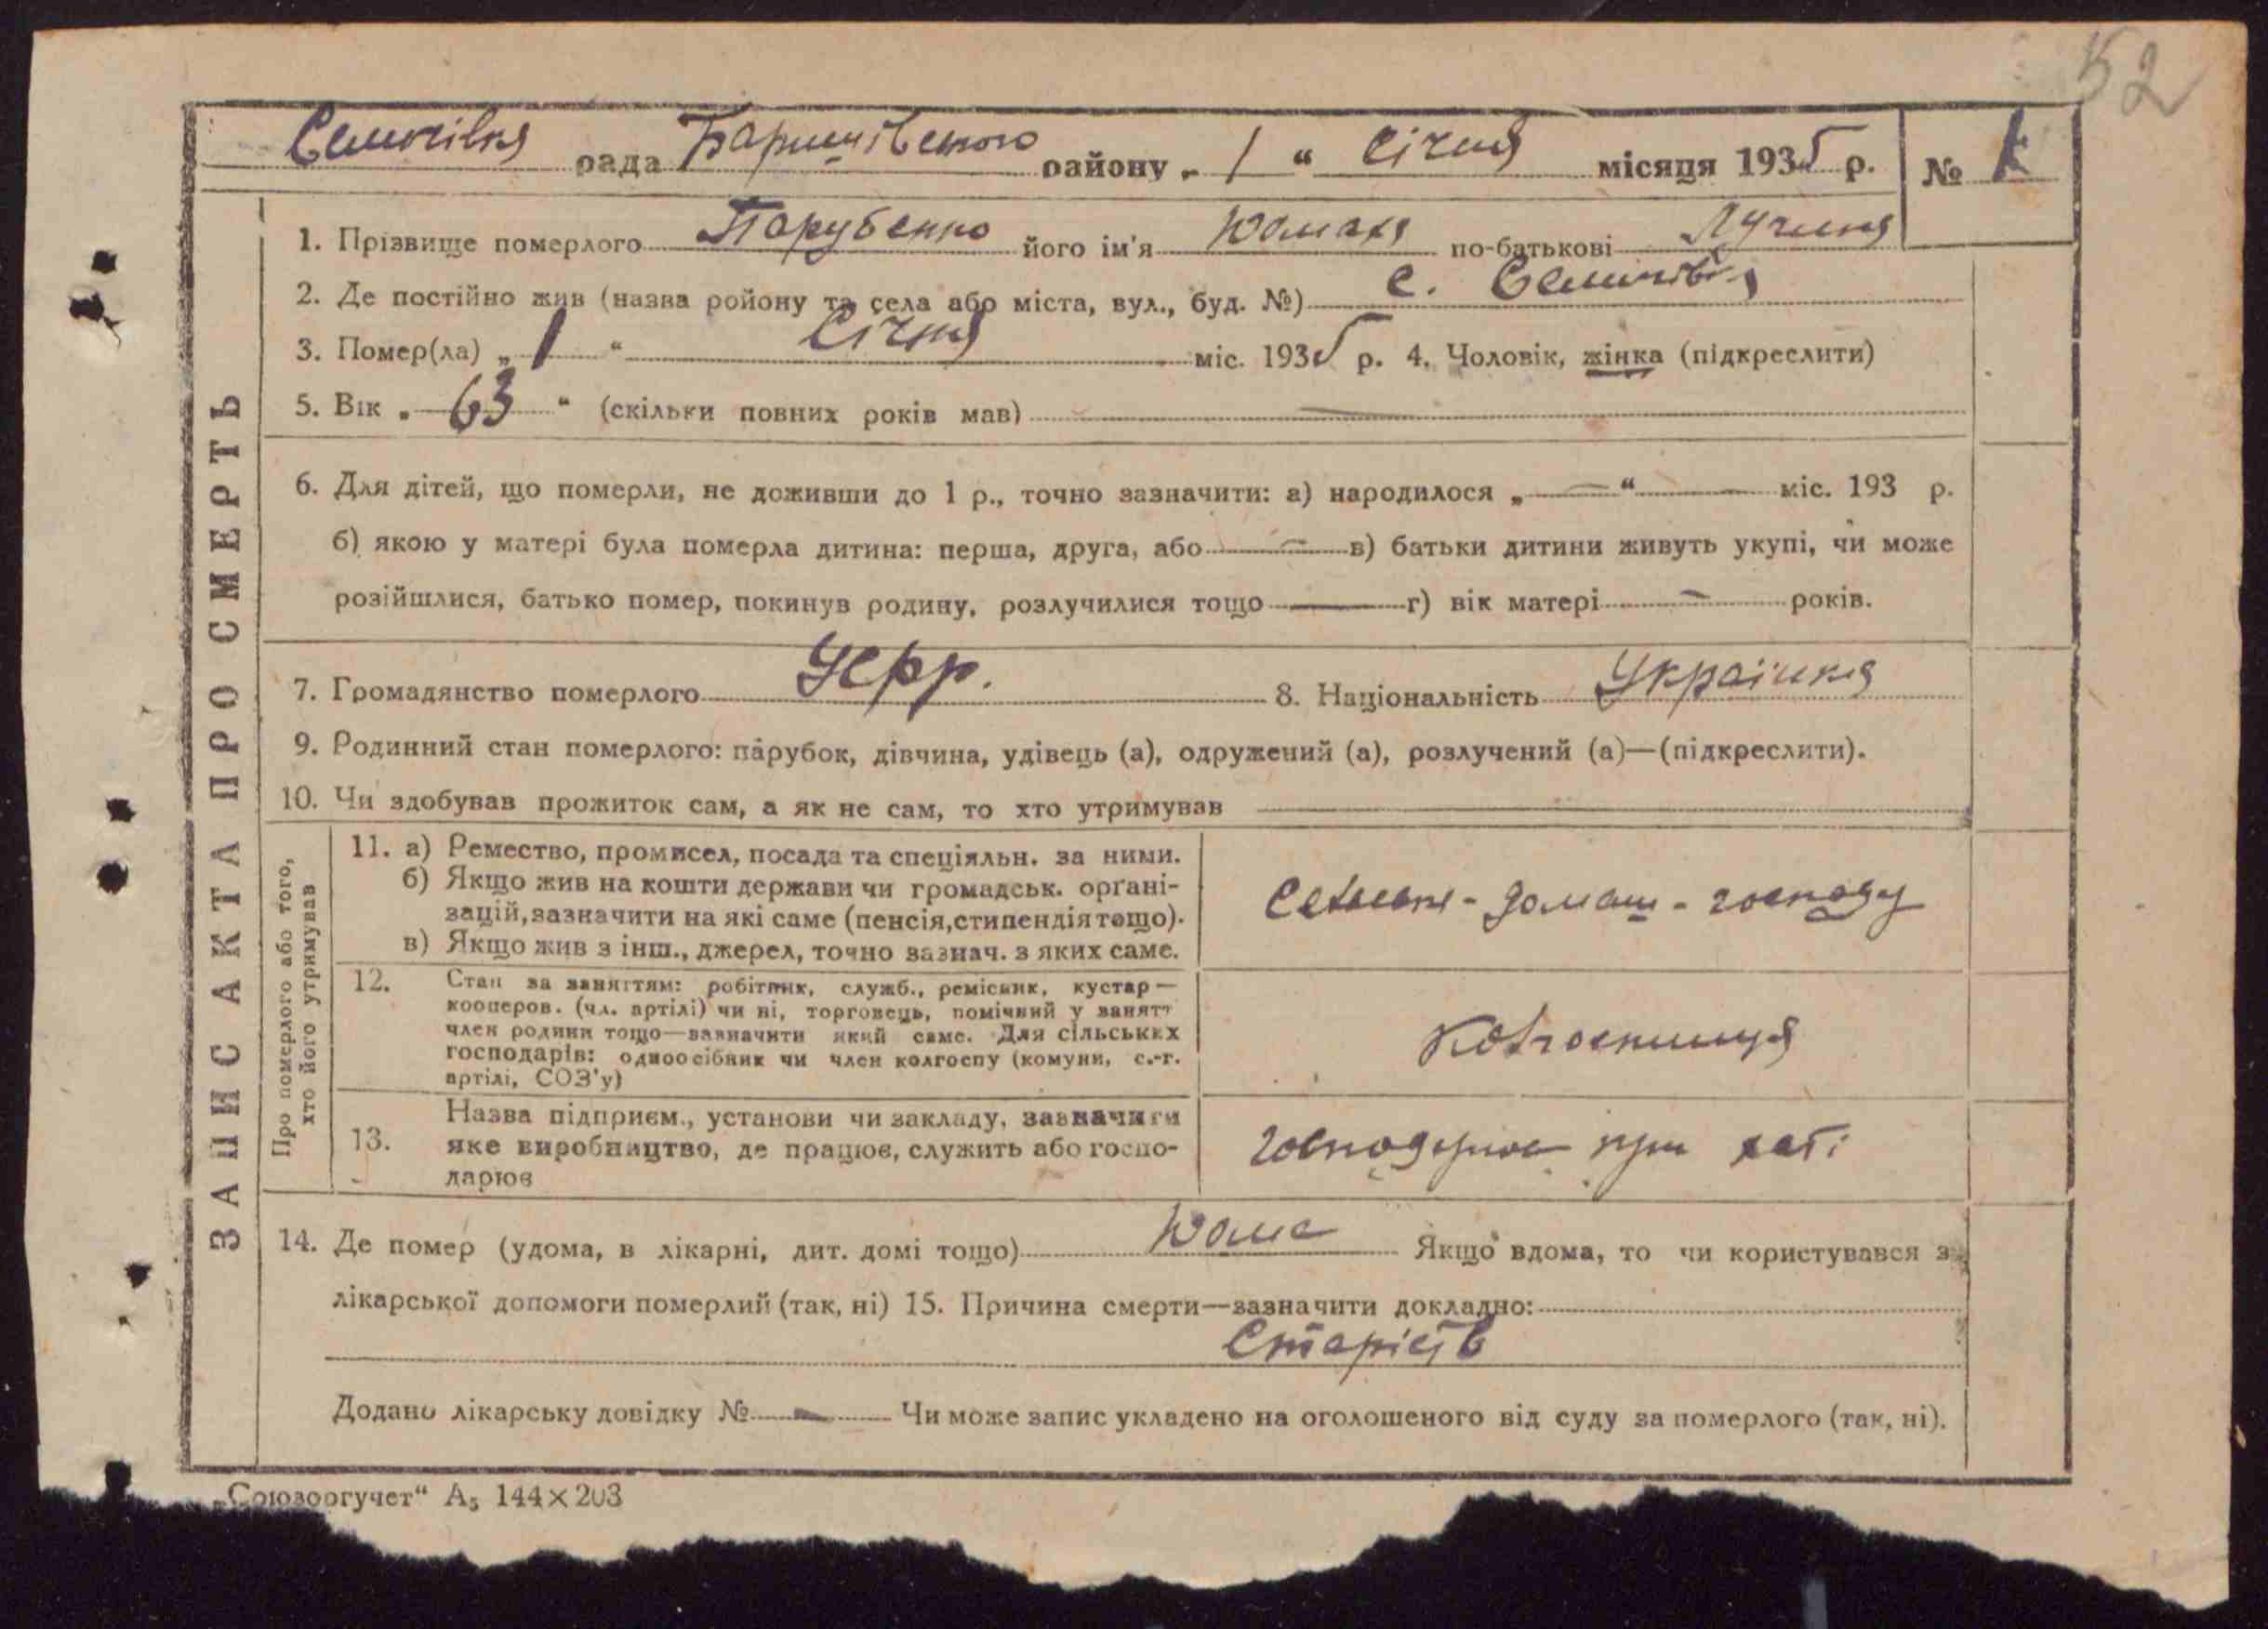 52
Селичівка рада Баришівського району „ 1 “ Січня місяця 1935 р. № 1
1. Прізвище померлого Парубенко його ім'я по-батькові
2. Де постійно жив (назва ройону та села або міста, вул., буд. №) с. Селичівка
3. Помер(ла) „ 1 “ Січня міс. 1935 р. 4. Чоловік, жінка (підкреслити)
5. Вік „ 63 “ (скільки повних років мав) —
6. Для дітей, що померли, не доживши до 1 р., точно зазначити: а) народилося „ — “ — міс. 193 р.
б) якою у матері була померла дитина: перша, друга, або — в) батьки дитини живуть укупі, чи може
розійшлися, батько помер, покинув родину, розлучилися тощо — г) вік матері — років.
7. Громадянство померлого Усрр. 8. Національність Українка
9. Родинний стан померлого: парубок, дівчина, удівець (а), одружений (а), розлучений (а)—(підкреслити).
10. Чи здобував прожиток сам, а як не сам, то хто утримував —
ЗАПИС АКТА ПРО СМЕРТЬ
Про померлого або того,
хто його утримував
11. а) Ремество, промисел, посада та спеціяльн. за ними.
б) Якщо жив на кошти держави чи громадськ. органі-
зацій, зазначити на які саме (пенсія, стипендія тощо).
в) Якщо жив з інш., джерел, точно зазнач. з яких саме.
домаш - господ
12. Стан за заняттям: робітник, служб., ремісник, кустар —
кооперов. (чл. артілі) чи ні, торговець, помічний у занятт
член родини тощо—зазначити який саме. Для сільських
господарів: одноосібник чи член колгоспу (комуни, с.-г.
артілі, СОЗ'у)
Колгоспниця
13. Назва підприєм., установи чи закладу, зазначити
яке виробництво, де працює, служить або госпо-
дарює
господарює при хаті
14. Де помер (удома, в лікарні, дит. домі тощо) Дома Якщо вдома, то чи користувався з
лікарської допомоги померлий (так, ні) 15. Причина смерти—зазначити докладно:
Старість
Додано лікарську довідку № — Чи може запис укладено на оголошеного від суду за померлого (так, ні).
„Союзоргучет“ А₅ 144×203